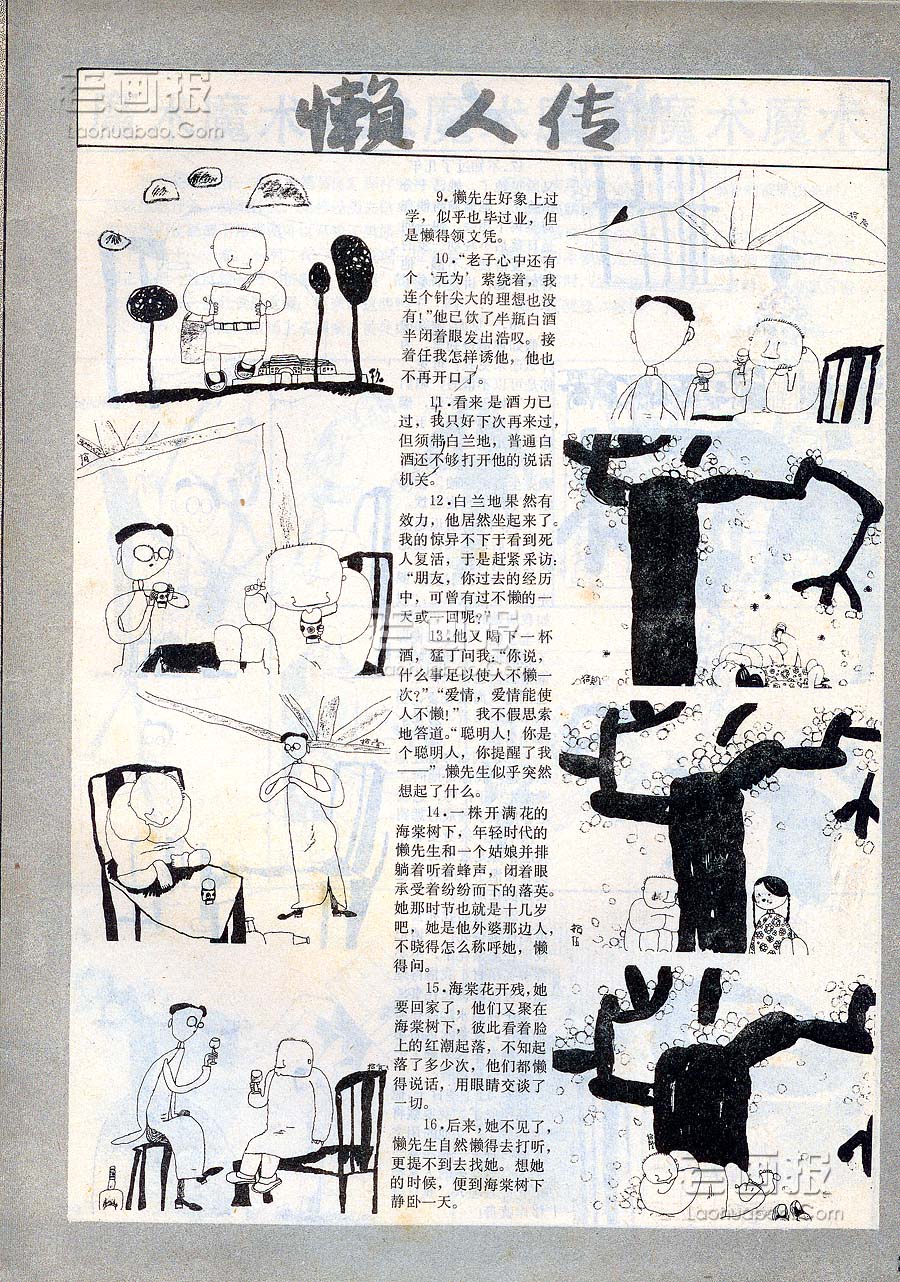 老画报
laohuabao.Com
懒人传
9.懒先生好象上过
学，似乎也毕过业，但
是懒得领文凭。
10.“老子心中还有
个‘无为’萦绕着，我
连个针尖大的理想也没
有！”他已饮了半瓶白酒
半闭着眼发出浩叹。接
着任我怎样诱他，他也
不再开口了。
11.看来是酒力已
过，我只好下次再来过，
但须带白兰地，普通白
酒还不够打开他的说话
机关。
12.白兰地果然有
效力，他居然坐起来了。
我的惊异不下于看到死
人复活，于是赶紧采访：
“朋友，你过去的经历
中，可曾有过不懒的一
天或一回呢？”
13.他又喝下一杯
酒，猛丁问我：“你说，
什么事足以使人不懒一
次？”“爱情，爱情能使
人不懒！” 我不假思索
地答道。“聪明人！你是
个聪明人，你提醒了我
——”懒先生似乎突然
想起了什么。
14.一株开满花的
海棠树下，年轻时代的
懒先生和一个姑娘并排
躺着听着蜂声，闭着眼
承受着纷纷而下的落英。
她那时节也就是十几岁
吧，她是他外婆那边人，
不晓得怎么称呼她，懒
得问。
15.海棠花开残，她
要回家了，他们又聚在
海棠树下，彼此看着脸
上的红潮起落，不知起
落了多少次，他们都懒
得说话，用眼睛交谈了
一切。
16.后来，她不见了，
懒先生自然懒得去打听，
更提不到去找她。想她
的时候，便到海棠树下
静卧一天。
老画报
老画报
laohuabao.Com